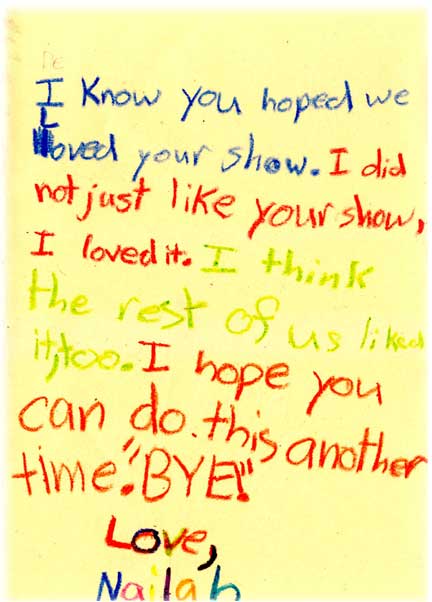 I know you hoped we
Loved your show. I did
not just like your show,
I loved it. I think
the rest of us liked
it, too. I hope you
can do this another
time. "BYE!"
Love,
Nailah